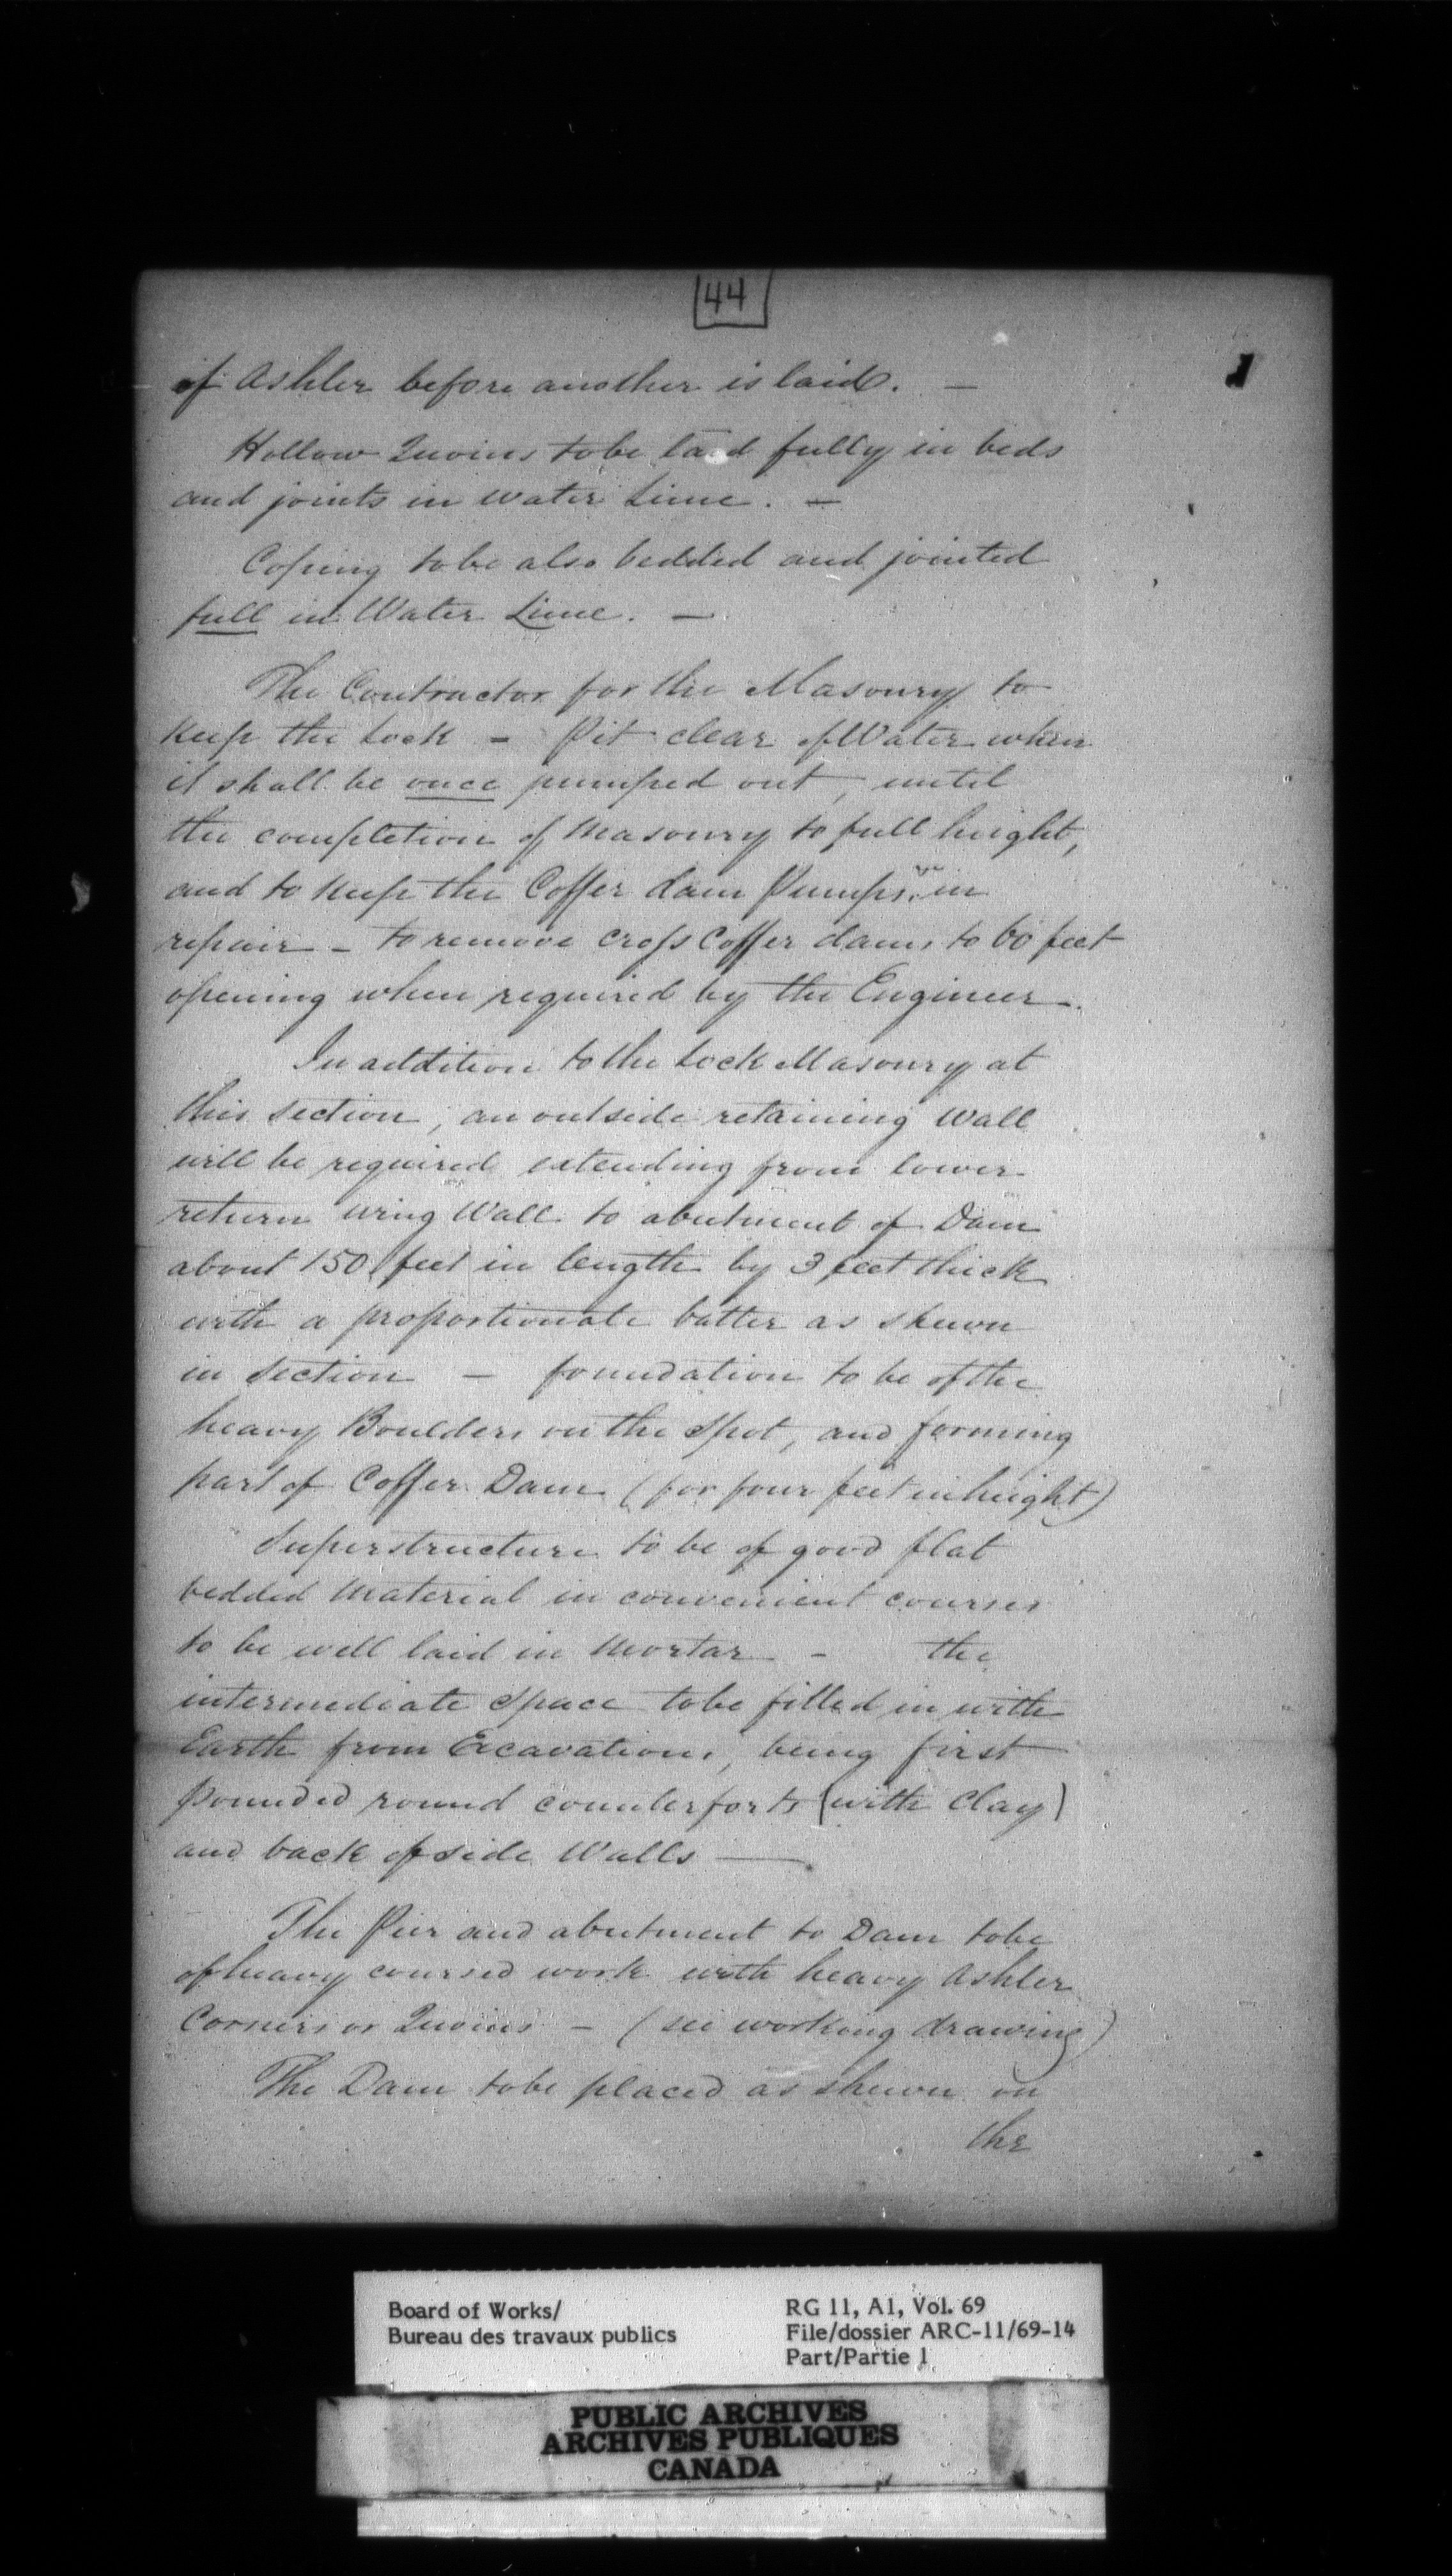 44
of Ashler before another is laid. —
Hollow Quoins to be laid fully in beds
and joints in water Lime. —
Coping to be also bedded and jointed
full in Water Lime. —
The Contractor for the Masonry to
keep the Lock - Pit clear of Water when
it shall be once pumped out, until
the completion of Masonry to full height,
and to keep the Coffer dam Pumps in
repair - to remove cross Coffer dams to 60 feet
opening when required by the Engineer.
In addition to the Lock Masonry at
this Section, an outside retaining Wall
will be required extending from lower
return wing Wall to abutment of Dam
about 150 feet in length by 3 feet thick
with a proportionate batter as shewn
in Section — foundation to be of the
heavy Boulders on the Spot, and forming
part of Coffer Dam (for four feet in height)
Superstructure to be of good flat
bedded Material in convenient courses
to be well laid in Mortar - the
intermediate Space to be filled in with
Earth from Excavations, being first
pounded round counterforts (with Clay)
and back of side Walls —
The Pier and abutment to Dam to be
of heavy coursed work with heavy Ashler
Corners or Quoins - (see working drawing)
The Dam to be placed as shewn on
the
Board of Works/
Bureau des travaux publics
RG 11, A1, Vol. 69
File/dossier ARC-11/69-14
Part/Partie 1
PUBLIC ARCHIVES
ARCHIVES PUBLIQUES
CANADA